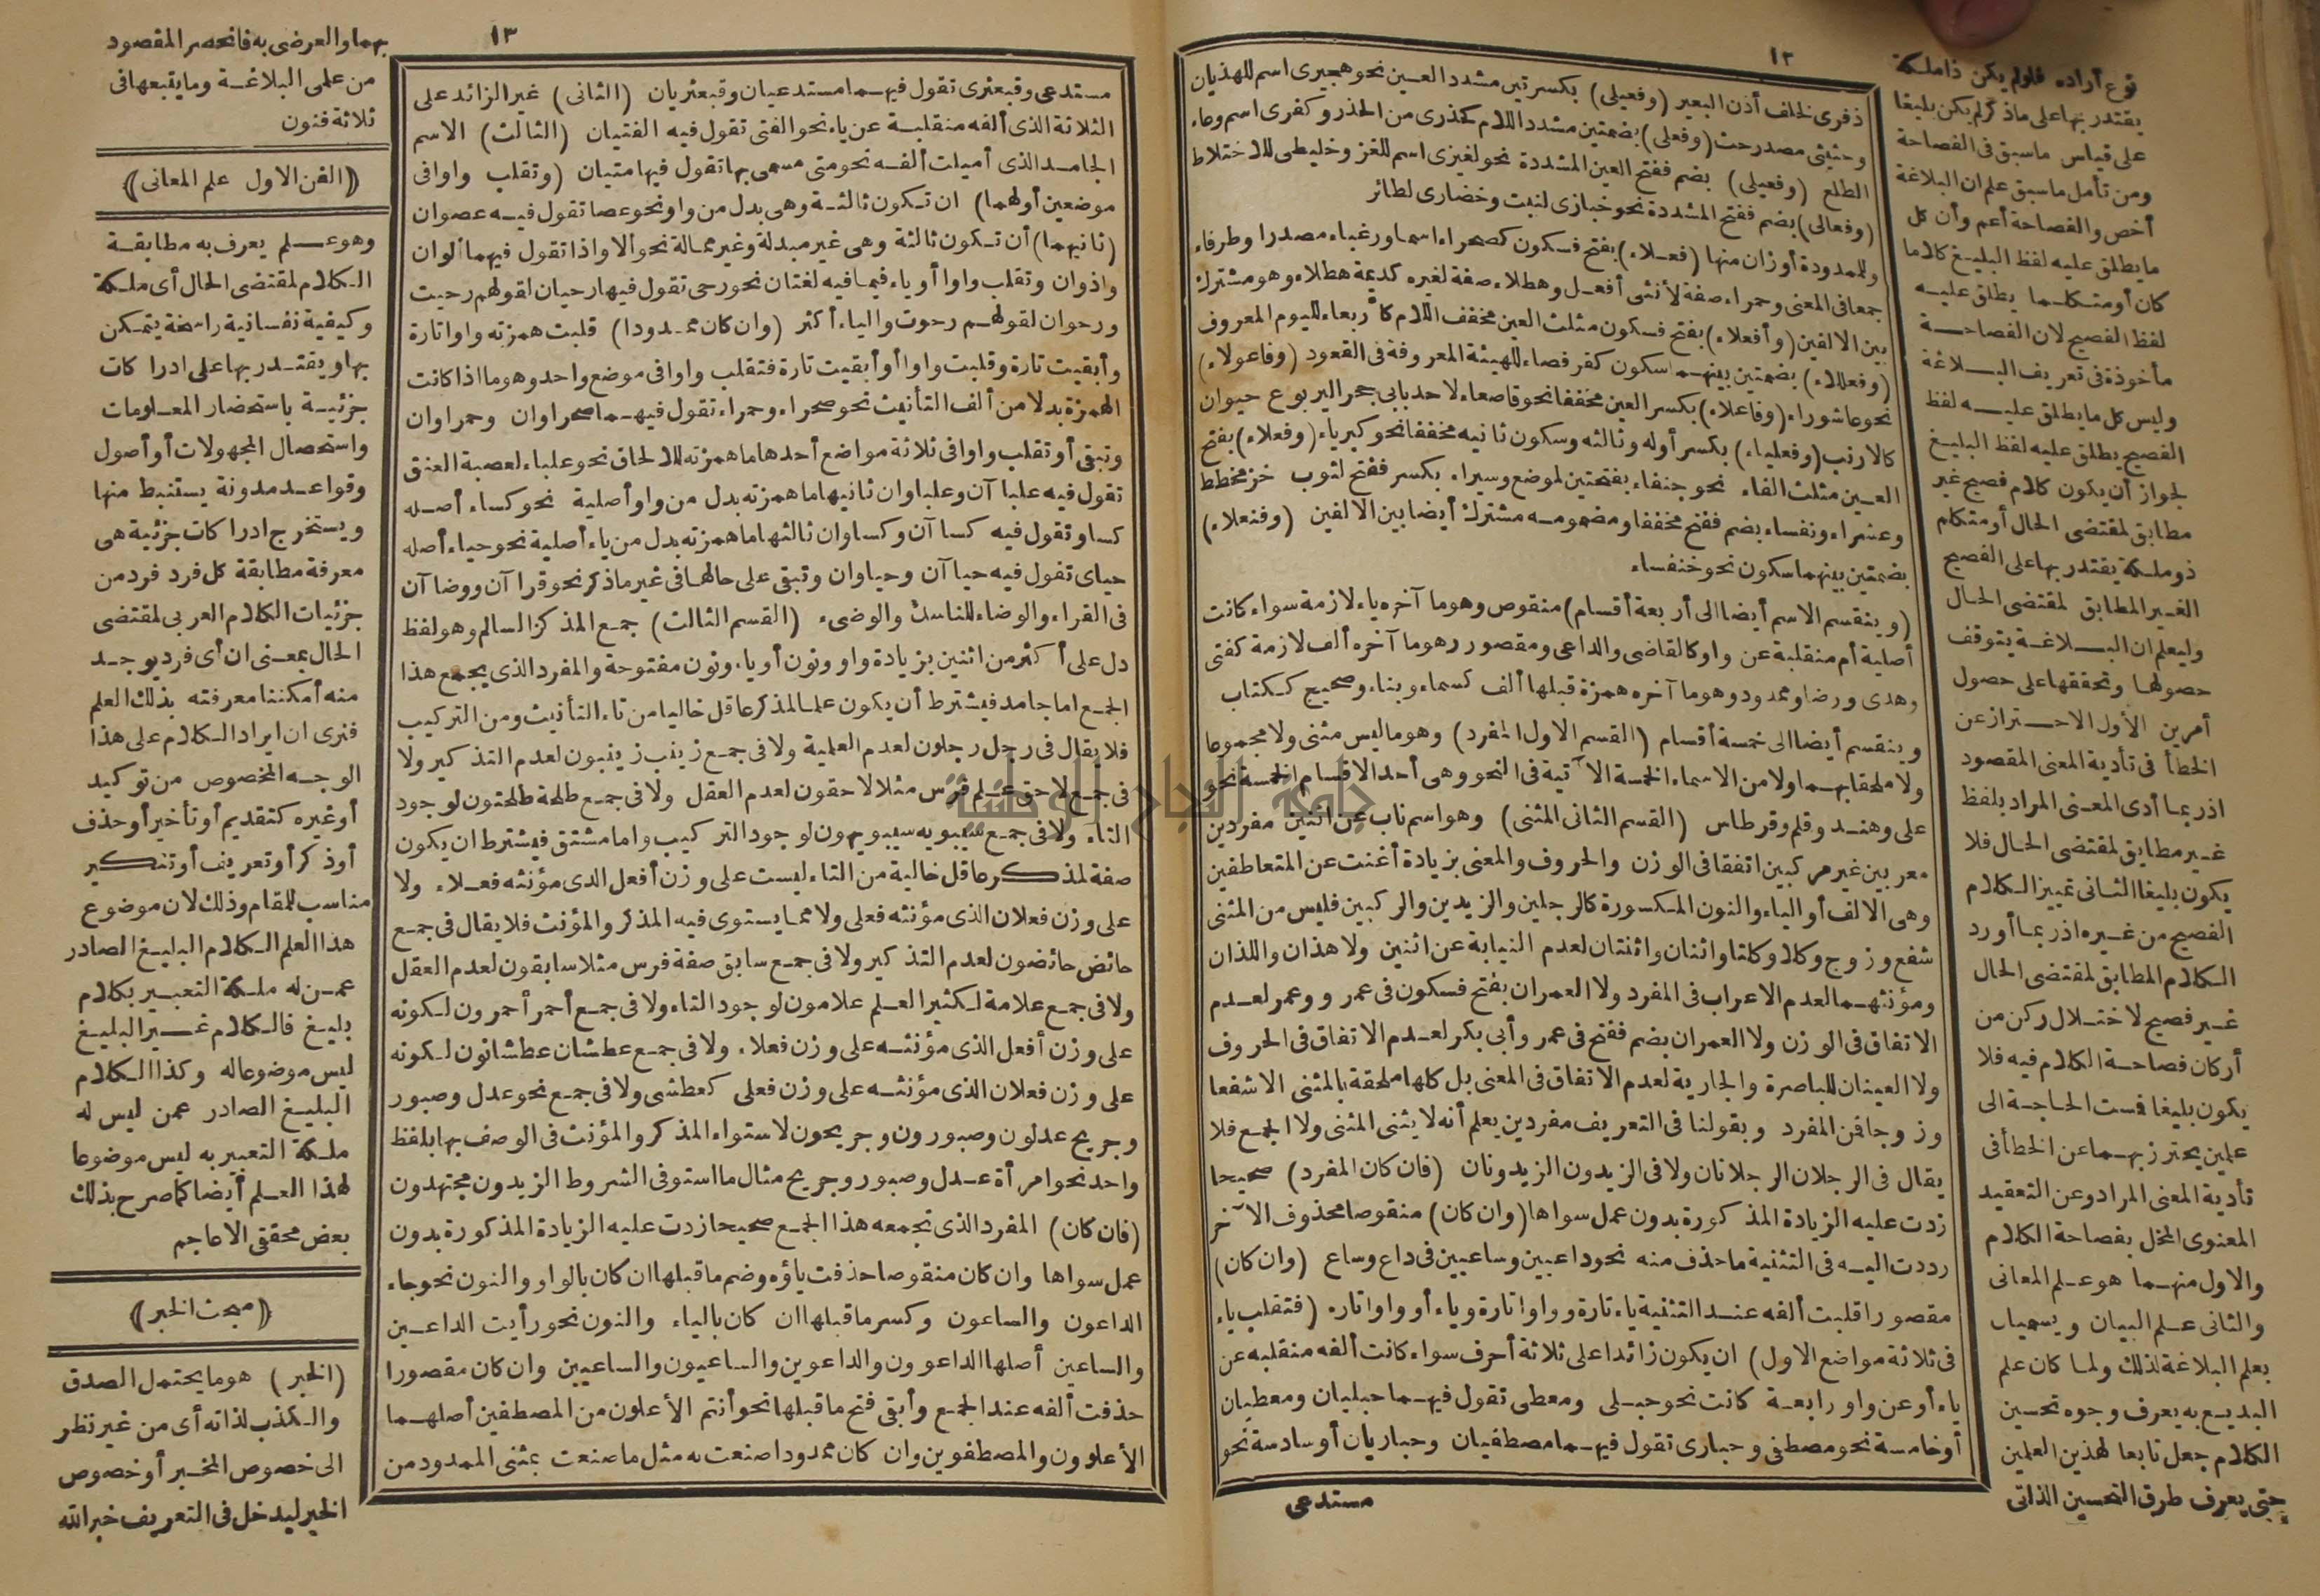 ١٢
ذفرى لخلف أذن البعير (وفعيلى) بكسرتين مشدد العين نحو هجيرى اسم للهذيان
وحثيثى مصدر حث (وفعلى) بضمتين مشدد اللام كحذرى من الحذر وكفرى اسم وعاء
الطلع (وفعيلى) بضم ففتح العين المشددة نحو لغيزى اسم للغز وخليطى للاختلاط
(وفعالى) بضم ففتح المشددة نحو خبازى لنبت وخضارى لطائر
وللممدودة أوزان منها (فعلاء) بفتح فسكون كصحراء اسما ورغباء مصدرا وطرفاء
جمعا فى المعنى وحمراء صفة لأنثى أفعل وهطلاء صفة لغيره كديمة هطلاء وهو مشترك
بين الالفين (وأفعلاء) بفتح فسكون مثلث العين مخفف اللام كأربعاء لليوم المعروف
(وفعللاء) بضمتين بينهما سكون كقرفصاء للهيئة المعروفة فى القعود (وفاعولاء)
نحو عاشوراء (وفاعلاء) بكسر العين مخففا نحو قاصعاء لاحد بابى جحر اليربوع حيوان
كالارنب (وفعلياء) بكسر أوله وثالثه وسكون ثانيه مخففا نحو كبرياء (وفعلاء) بفتح
العين مثلث الفاء نحو جنفاء بفتحتين لموضع وسيراء بكسر ففتح لثوب خز مخطط
وعشراء ونفساء بضم ففتح مخففا ومضمومه مشترك أيضا بين الالفين (وفنعلاء)
بضمتين بينهما سكون نحو خنفساء
(وينقسم الاسم أيضا الى أربعة أقسام) منقوص وهو ما آخره ياء لازمة سواء كانت
أصلية أم منقلبة عن واو كالقاضى والداعى ومقصور وهو ما آخره ألف لازمة كفتى
وهدى ورضا وممدود وهو ما آخره همزة قبلها ألف كسماء وبناء وصحيح ككتاب
وينقسم أيضا الى خمسة أقسام (القسم الاول المفرد) وهو ما ليس مثنى ولا مجموعا
ولا ملحقا بهما ولا من الاسماء الخمسة الآتية فى النحو وهى أحد الاقسام الخمسة نحو
على وهند وقلم وقرطاس (القسم الثانى المثنى) وهو اسم ناب عن اثنين مفردين
معربين غير مركبين اتفقا فى الوزن والحروف والمعنى بزيادة أغنت عن المتعاطفين
وهى الالف أو الياء والنون المكسورة كالرجلين والزيدين والركبين فليس من المثنى
شفع وزوج وكلا وكلتا واثنان واثنتان لعدم النيابة عن اثنين ولا هذان واللذان
ومؤنثهما لعدم الاعراب فى المفرد ولا العمران بفتح فسكون فى عمرو وعمر لعدم
الاتفاق فى الوزن ولا العمران بضم ففتح فى عمر وأبى بكر لعدم الاتفاق فى الحروف
ولا العينان للباصرة والجارية لعدم الاتفاق فى المعنى بل كلها ملحقة بالمثنى الا شفعا
وزوجا فمن المفرد وبقولنا فى التعريف مفردين يعلم أنه لا يثنى المثنى ولا الجمع فلا
يقال فى الرجلان الرجلانان ولا فى الزيدون الزيدونان (فان كان المفرد) صحيحا
زدت عليه الزيادة المذكورة بدون عمل سواها (وان كان) منقوصا محذوف الآخر
رددت اليه فى التثنية ما حذف منه نحو داعيين وساعيين فى داع وساع (وان كان)
مقصورا قلبت ألفه عند التثنية ياء تارة وواوا تارة وياء أو واوا تاره (فتقلب ياء
فى ثلاثة مواضع الاول) ان يكون زائدا على ثلاثة أحرف سواء كانت ألفه منقلبه عن
ياء أو عن واو رابعة كانت نحو حبلى ومعطى تقول فيهما حبليان ومعطيان
أو خامسة نحو مصطفى وحبارى تقول فيهما مصطفيان وحباريان أو سادسة نحو
مستدعى
نوع أراده فلو لم يكن ذا ملكة
يقتدر بها على ما ذكر لم يكن بليغا
على قياس ما سبق فى الفصاحة
ومن تأمل ما سبق علم ان البلاغة
أخص والفصاحة أعم وأن كل
ما يطلق عليه لفظ البليغ كلاما
كان أو متكلما يطلق عليه
لفظ الفصيح لان الفصاحة
مأخوذة فى تعريف البلاغة
وليس كل ما يطلق عليه لفظ
الفصيح يطلق عليه لفظ البليغ
لجواز أن يكون كلام فصيح غير
مطابق لمقتضى الحال أو متكلم
ذو ملكة يقتدر بها على الفصيح
الغير المطابق لمقتضى الحال
وليعلم ان البلاغة يتوقف
حصولها وتحققها على حصول
أمرين الأول الاحتراز عن
الخطأ فى تأدية المعنى المقصود
اذ ربما أدى المعنى المراد بلفظ
غير مطابق لمقتضى الحال فلا
يكون بليغا الثانى تمييز الكلام
الفصيح من غيره اذ ربما أورد
الكلام المطابق لمقتضى الحال
غير فصيح لاختلال ركن من
أركان فصاحة الكلام فيه فلا
يكون بليغا فمست الحاجة الى
علمين يحترز بهما عن الخطأ فى
تأدية المعنى المراد وعن التعقيد
المعنوى المخل بفصاحة الكلام
والاول منهما هو علم المعانى
والثانى علم البيان ويسميان
بعلم البلاغة لذلك ولما كان علم
البديع به يعرف وجوه تحسين
الكلام جعل تابعا لهذين العلمين
حتى يعرف طرق التحسين الذاتى
١٣
مستدعى وقبعثرى تقول فيهما مستدعيان وقبعثريان (الثانى) غير الزائد على
الثلاثة الذى ألفه منقلبة عن ياء نحو الفتى تقول فيه الفتيان (الثالث) الاسم
الجامد الذى أميلت ألفه نحو متى مسمى بها تقول فيها متيان (وتقلب واوا فى
موضعين أولهما) ان تكون ثالثة وهى بدل من واو نحو عصا تقول فيه عصوان
(ثانيهما) أن تكون ثالثة وهى غير مبدلة وغير ممالة نحو ألا واذا تقول فيهما ألوان
واذوان وتقلب واوا أو ياء فيما فيه لغتان نحو رحى تقول فيها رحيان لقولهم رحيت
ورحوان لقولهم رحوت والياء أكثر (وان كان ممدودا) قلبت همزته واوا تارة
وأبقيت تارة وقلبت واوا أو أبقيت تارة فتقلب واوا فى موضع واحد وهو ما اذا كانت
الهمزة بدلا من ألف التأنيث نحو صحراء وحمراء تقول فيهما صحراوان وحمراوان
وتبقى أو تقلب واوا فى ثلاثة مواضع أحدها ما همزته للالحاق نحو علباء لعصبة العنق
تقول فيه علباآن وعلباوان ثانيها ما همزته بدل من واو أصلية نحو كساء أصله
كساو تقول فيه كساآن وكساوان ثالثها ما همزته بدل من ياء أصلية نحو حياء أصله
حياى تقول فيه حياآن وحياوان وتبقى على حالها فى غير ماذكر نحو قراآن ووضاآن
فى القراء والوضاء للناسك والوضىء (القسم الثالث) جمع المذكر السالم وهو لفظ
دل على أكثر من اثنين بزيادة واو ونون أو ياء ونون مفتوحة والمفرد الذى يجمع هذا
الجمع اما جامد فيشترط أن يكون علما لمذكر عاقل خاليا من تاء التأنيث ومن التركيب
فلا يقال فى رجل رجلون لعدم العلمية ولا فى جمع زينب زينبون لعدم التذكير ولا
فى جمع لاحق علم فرس مثلا لاحقون لعدم العقل ولا فى جمع طلحة طلحتون لوجود
التاء ولا فى جمع سيبويه سيبويهون لوجود التركيب واما مشتق فيشترط ان يكون
صفة لمذكر عاقل خالية من التاء ليست على وزن أفعل الدى مؤنثه فعلاء ولا
على وزن فعلان الذى مؤنثه فعلى ولا مما يستوى فيه المذكر والمؤنث فلا يقال فى جمع
حائض حائضون لعدم التذكير ولا فى جمع سابق صفة فرس مثلا سابقون لعدم العقل
ولا فى جمع علامة لكثير العلم علامون لوجود التاء ولا فى جمع أحمر أحمرون لكونه
على وزن أفعل الذى مؤنثه على وزن فعلاء ولا فى جمع عطشان عطشانون لكونه
على وزن فعلان الذى مؤنثه على وزن فعلى كعطشى ولا فى جمع نحو عدل وصبور
وجريح عدلون وصبورون وجريحون لاستواء المذكر والمؤنث فى الوصف بها بلفظ
واحد نحو امرأة عدل وصبور وجريح مثال ما استوفى الشروط الزيدون مجتهدون
(فان كان) المفرد الذى تجمعه هذا الجمع صحيحا زدت عليه الزيادة المذكورة بدون
عمل سواها وان كان منقوصا حذفت ياؤه وضم ما قبلها ان كان بالواو والنون نحو جاء
الداعون والساعون وكسر ما قبلها ان كان بالياء والنون نحو رأيت الداعين
والساعين أصلها الداعوون والداعوين والساعيون والساعيين وان كان مقصورا
حذفت ألفه عند الجمع وأبقى فتح ما قبلها نحو أنتم الأعلون من المصطفين أصلهما
الأعلوون والمصطفوين وان كان ممدودا صنعت به مثل ما صنعت بمثنى الممدود من
بهما والعرضى به فانحصر المقصود
من علمى البلاغة وما يتبعها فى
ثلاثة فنون
﴿الفن الاول علم المعانى﴾
وهو علم يعرف به مطابقة
الكلام لمقتضى الحال أى ملكة
وكيفية نفسانية راسخة يتمكن
بها ويقتدر بها على ادراكات
جزئية باستحضار المعلومات
واستحصال المجهولات أو أصول
وقواعد مدونة يستنبط منها
ويستخرج ادراكات جزئية هى
معرفة مطابقة كل فرد فرد من
جزئيات الكلام العربى لمقتضى
الحال بمعنى ان أى فرد يوجد
منه أمكننا معرفته بذلك العلم
فنرى ان ايراد الكلام على هذا
الوجه المخصوص من توكيد
أو غيره كتقديم أو تأخير أو حذف
أو ذكر أو تعريف أو تنكير
مناسب للمقام وذلك لان موضوع
هذا العلم الكلام البليغ الصادر
عمن له ملكة التعبير بكلام
بليغ فالكلام غير البليغ
ليس موضوعا له وكذا الكلام
البليغ الصادر عمن ليس له
ملكة التعبير به ليس موضوعا
لهذا العلم أيضا كما صرح بذلك
بعض محققى الاعاجم
﴿مبحث الخبر﴾
(الخبر) هو ما يحتمل الصدق
والكذب لذاته أى من غير نظر
الى خصوص المخبر أو خصوص
الخبر ليدخل فى التعريف خبر الله
جامعة النجاح الوطنية